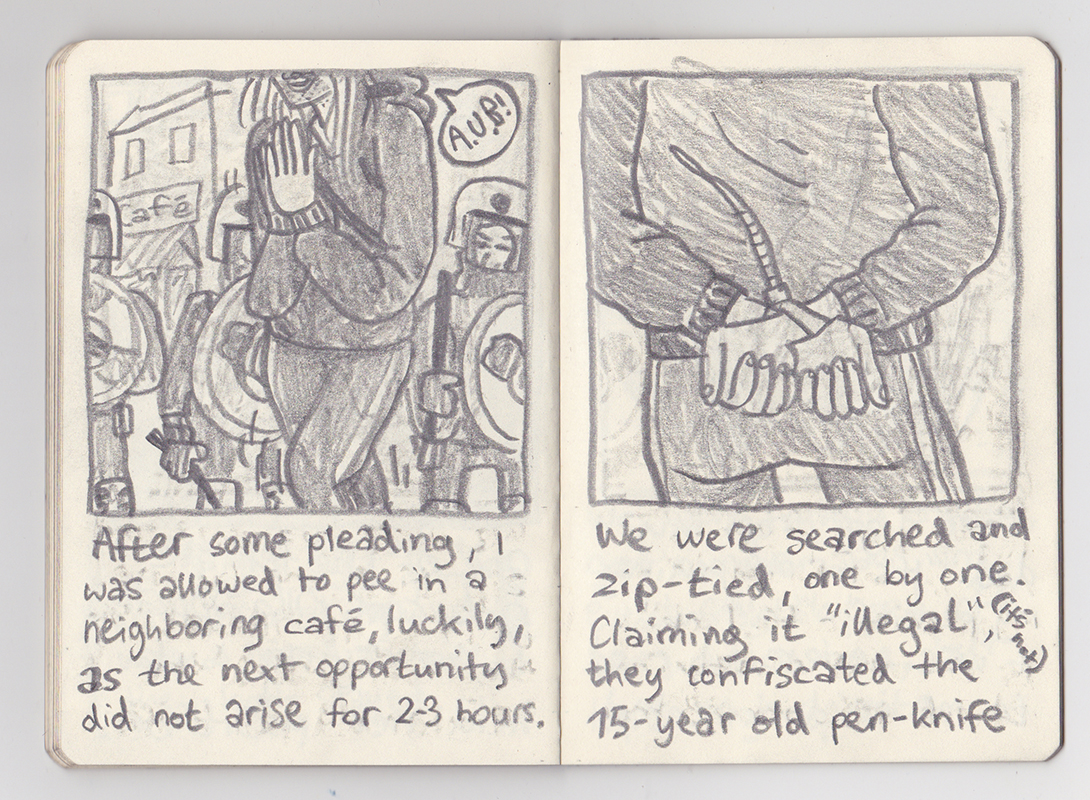 A.U.B!
Café
After some pleading, I
was allowed to pee in a
neighboring café, luckily,
as the next opportunity
did not arise for 2-3 hours.
We were searched and
zip-tied, one by one.
Claiming it "illegal", (it's not)
they confiscated the
15-year old pen-knife